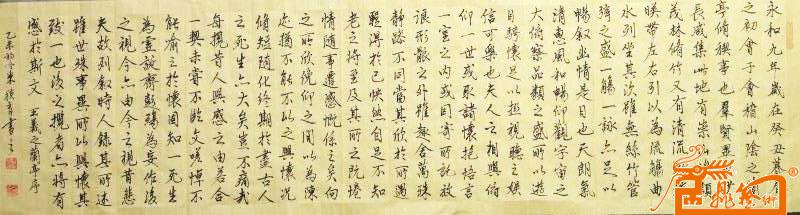 永和九年歲在癸丑暮春
之初會于會稽山陰之蘭
亭脩禊事也羣賢畢至少
長咸集此地有崇山峻領
茂林脩竹又有清流激湍
暎帶左右引以為流觴曲
水列坐其次雖無絲竹管
弦之盛一觴一詠亦足以
暢敘幽情是日也天朗氣
清惠風和暢仰觀宇宙之
大俯察品類之盛所以遊
目騁懷足以極視聽之娛
信可樂也夫人之相與俯
仰一世或取諸懷抱悟言
一室之內或因寄所託放
浪形骸之外雖趣舍萬殊
靜躁不同當其欣於所遇
暫得於己怏然自足不知
老之將至及其所之既惓
情隨事遷感慨係之矣向
之所欣俛仰之間以為陳
迹猶不能不以之興懷況
脩短隨化終期於盡古人
云死生亦大矣豈不痛哉
每攬昔人興感之由若合
一契未嘗不臨文嗟悼不
能喻之於懷固知一死生
為虛誕齊彭殤為妄作後
之視今亦由今之視昔悲
夫故列敘時人錄其所述
雖世殊事異所以興懷其
致一也後之攬者亦將有
感於斯文 王羲之蘭亭序
乙未 書之